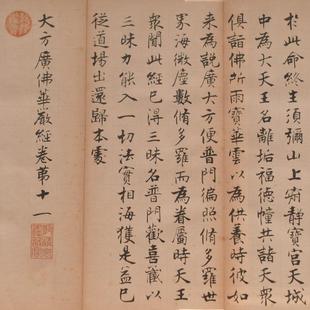 於此命終生須彌山上寂靜寶宮天城
中為大天王名離垢福德幢共諸天眾
俱詣佛所雨寶華雲以為供養時彼如
來為說廣大方便普門徧照脩多羅世
界海微塵數脩多羅而為眷屬時天王
眾聞此經已得三昧名普門歡喜藏以
三昧力能入一切法實相海獲是益已
從道場出還歸本處
大方廣佛華嚴經卷第十一